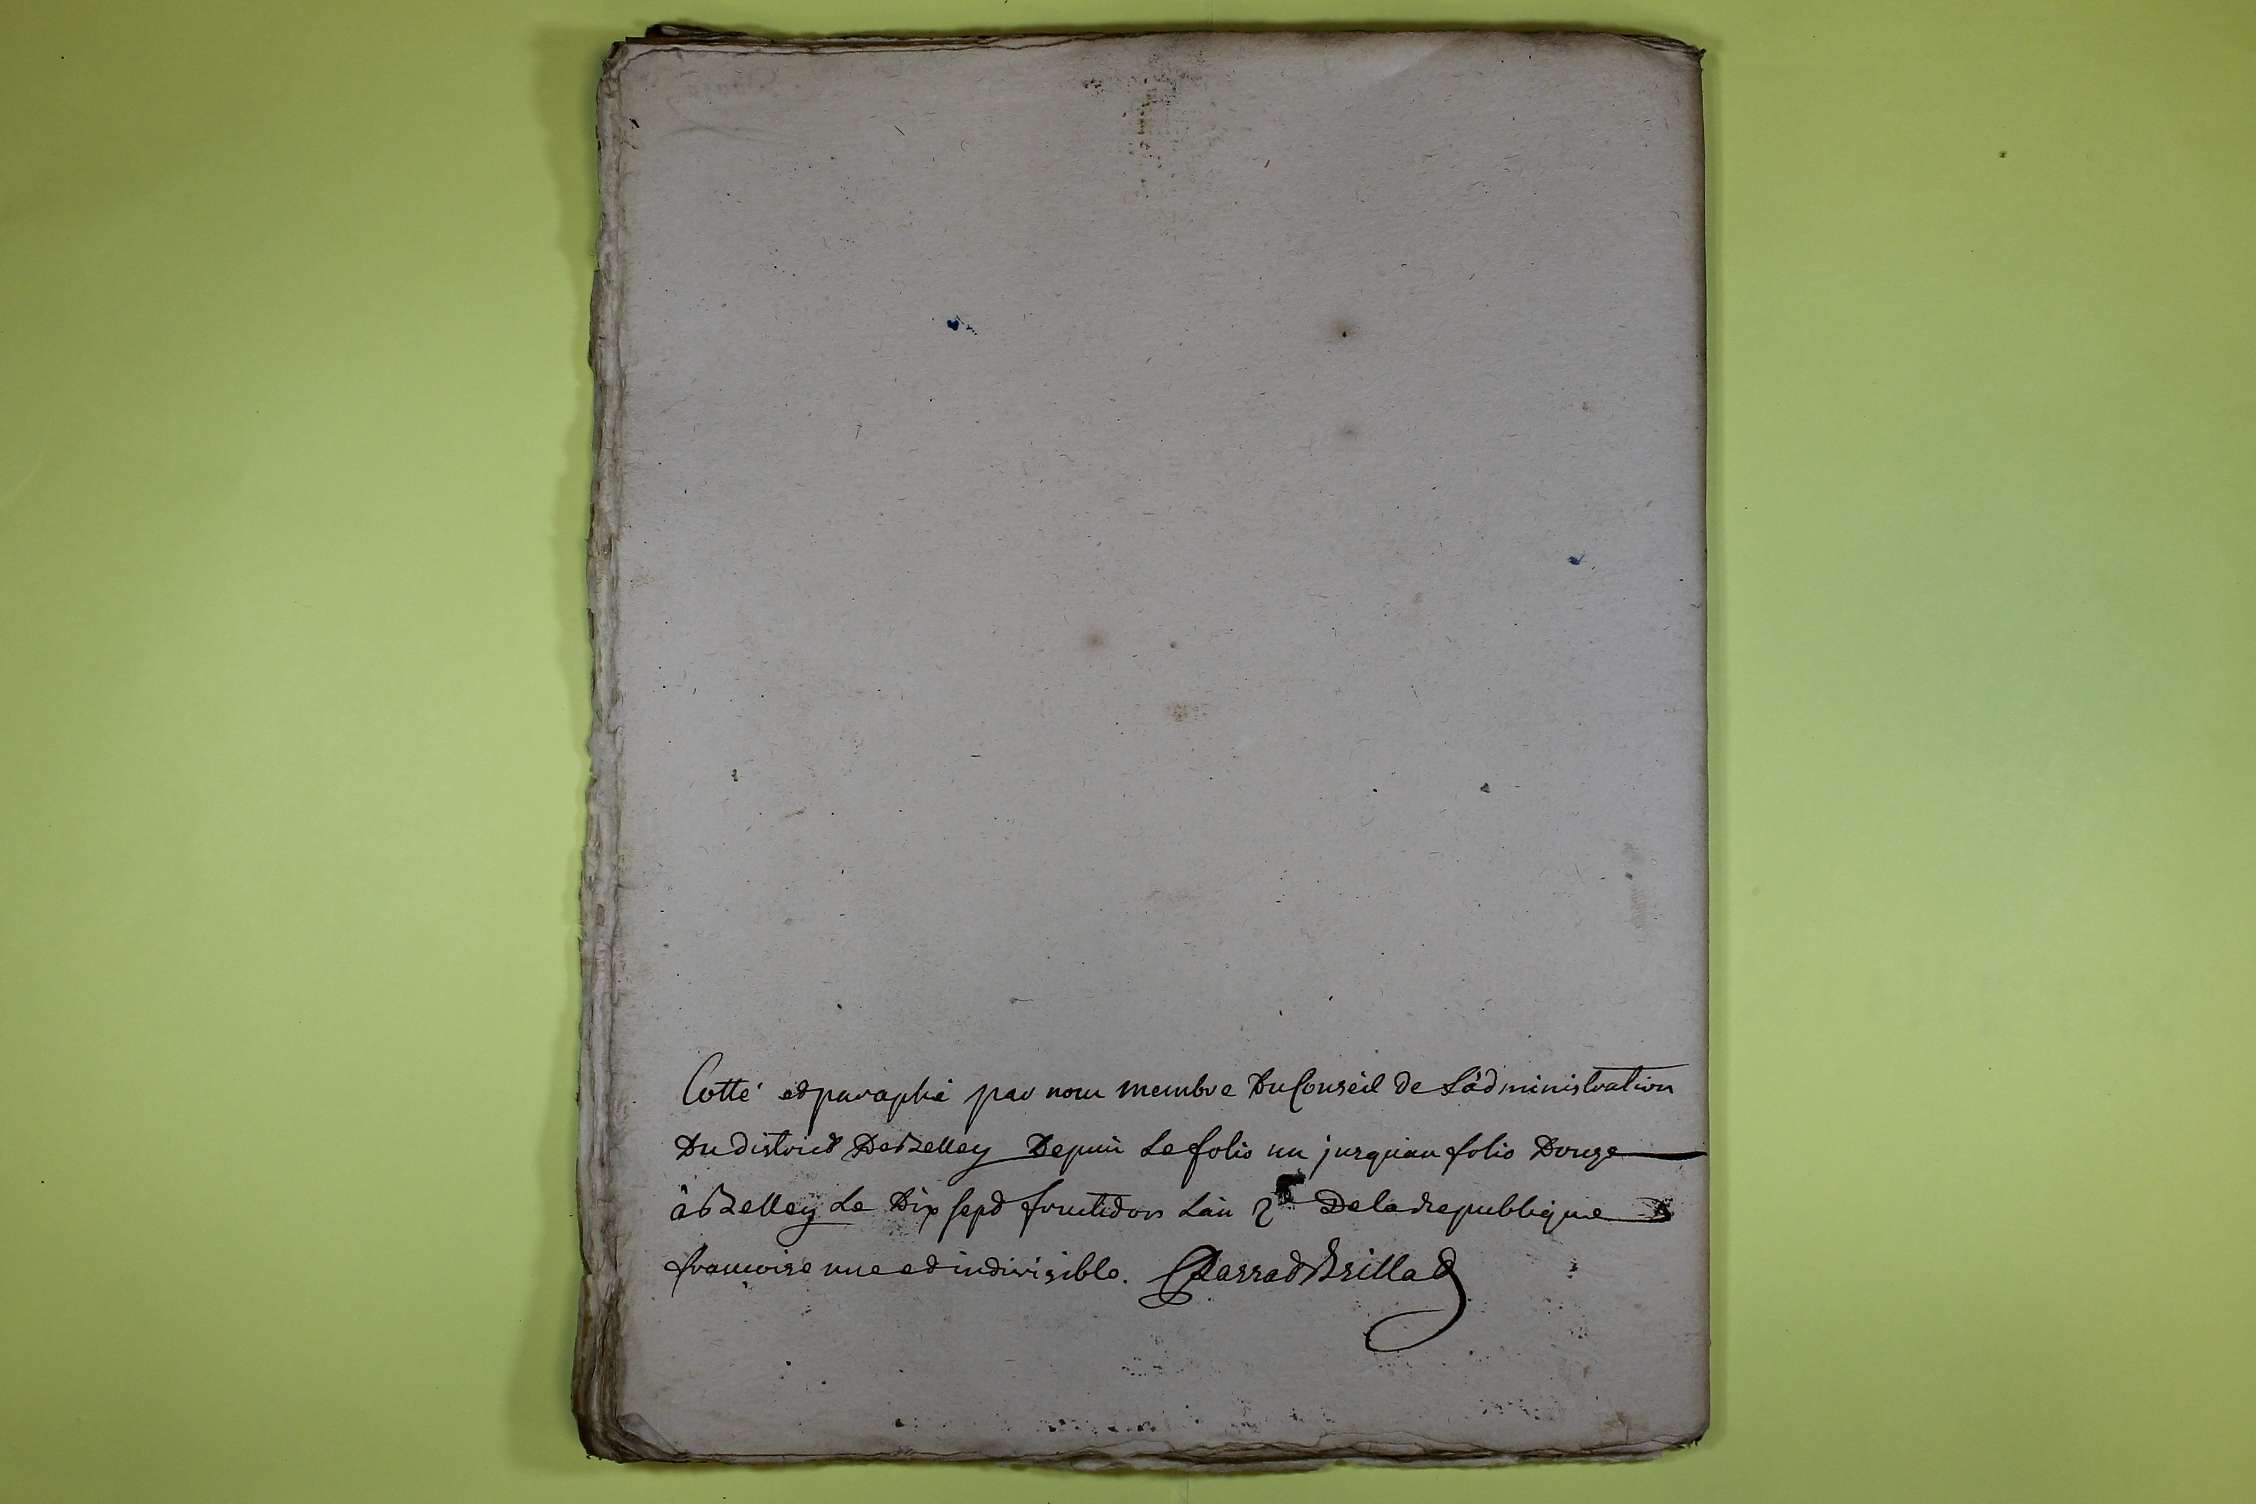 Cotté et paraphé par nous membre Du Conseil de L'administration
Du district De Belley Depuis Le folio un jusquiau folio Douze
à Belley Le Dix sept fructidor L'an 2e De la republlique
francoise une et indivisible.